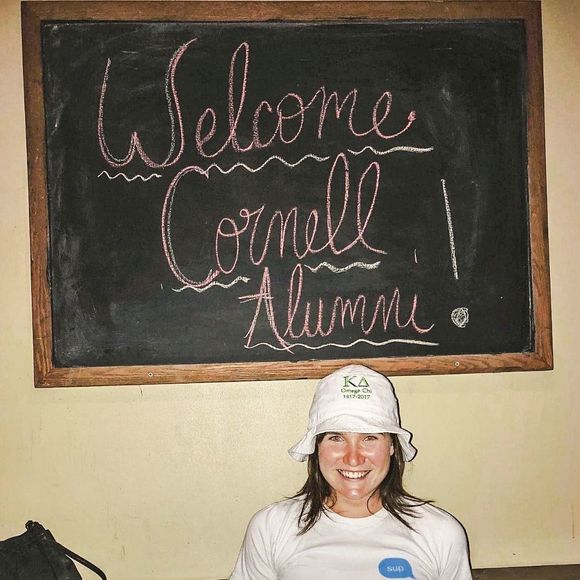 Welcome
Cornell !
Alumni
ΚΔ
Omega Chi
1917-2017
sup